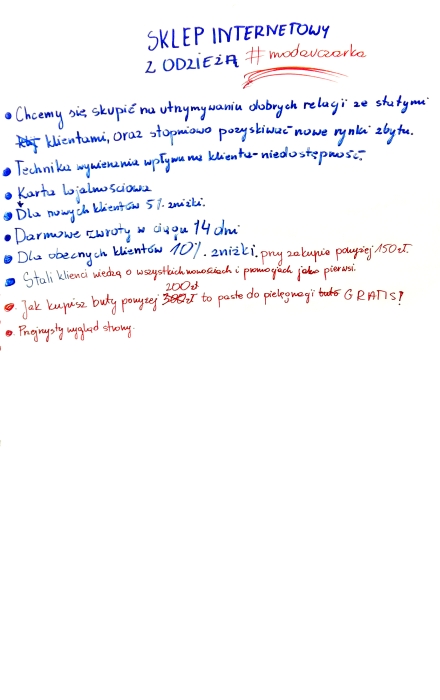 SKLEP INTERNETOWY
Z ODZIEŻĄ #modauczarka
• Chcemy się skupić na utrzymywaniu dobrych relacji ze stałymi
klientami, oraz stopniowo pozyskiwać nowe rynki zbytu.
• Technika wywierania wpływu na klienta - niedostępność.
• Karta lojalnościowa
• Dla nowych klientów 5%. zniżki.
• Darmowe zwroty w ciągu 14 dni
• Dla obecnych klientów 10%. zniżki, przy zakupie powyżej 150 zł.
• Stali klienci wiedzą o wszystkich nowościach i promocjach jako pierwsi.
200 zł
• Jak kupisz buty powyżej 300 zł to paste do pielęgnacji buto GRATIS!
• Przejrzysty wygląd strony.